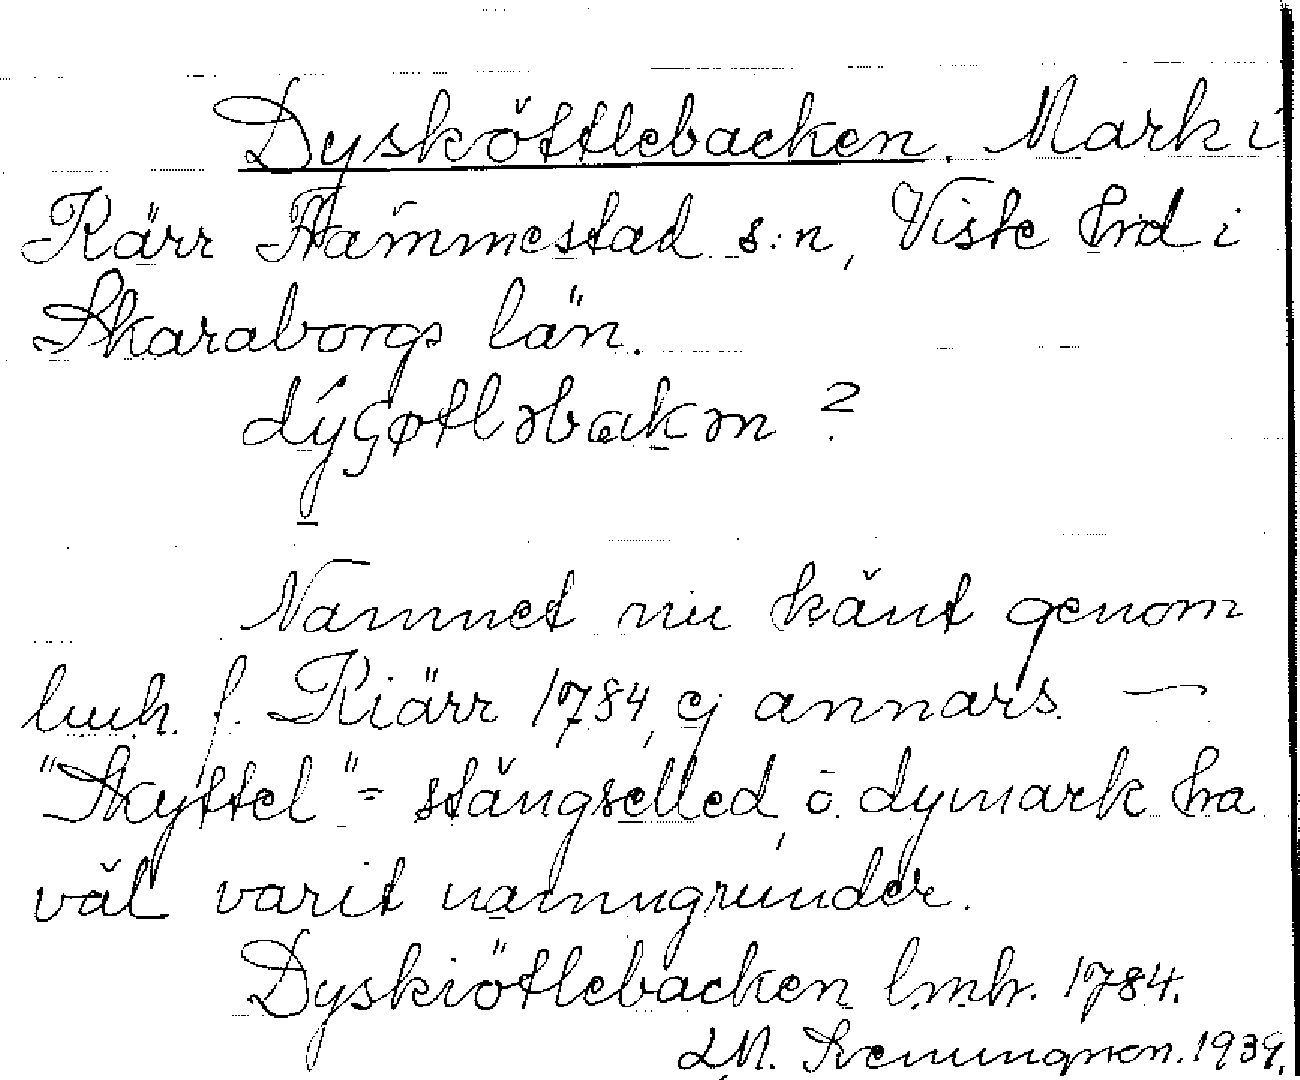 Dysköttlebacken. Mark i
Kärr Flämmestad s:n, Viste hrd i
Skaraborgs län.
dýçøtləbakən ?
Namnet nu känt genom
lmh. f. Kiärr 1784, ej annars. —
"Skyttel" = stängselled, o. dymark ha
väl varit namngrunder.
Dyskiötlebacken lmh. 1784.